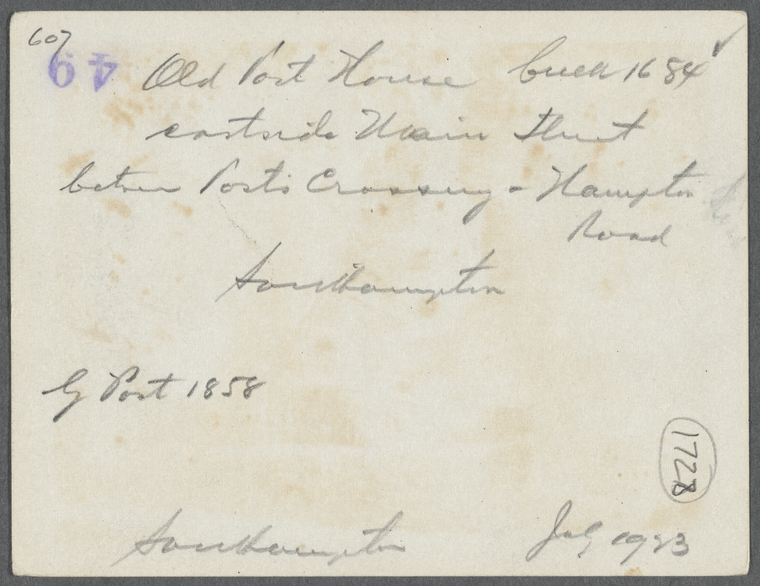 607
49 Old Post House built 1684
eastside Main Street
between Posts Crossing - Hampton
Road
Southampton
G Post 1858
1728
Southampton July 1923